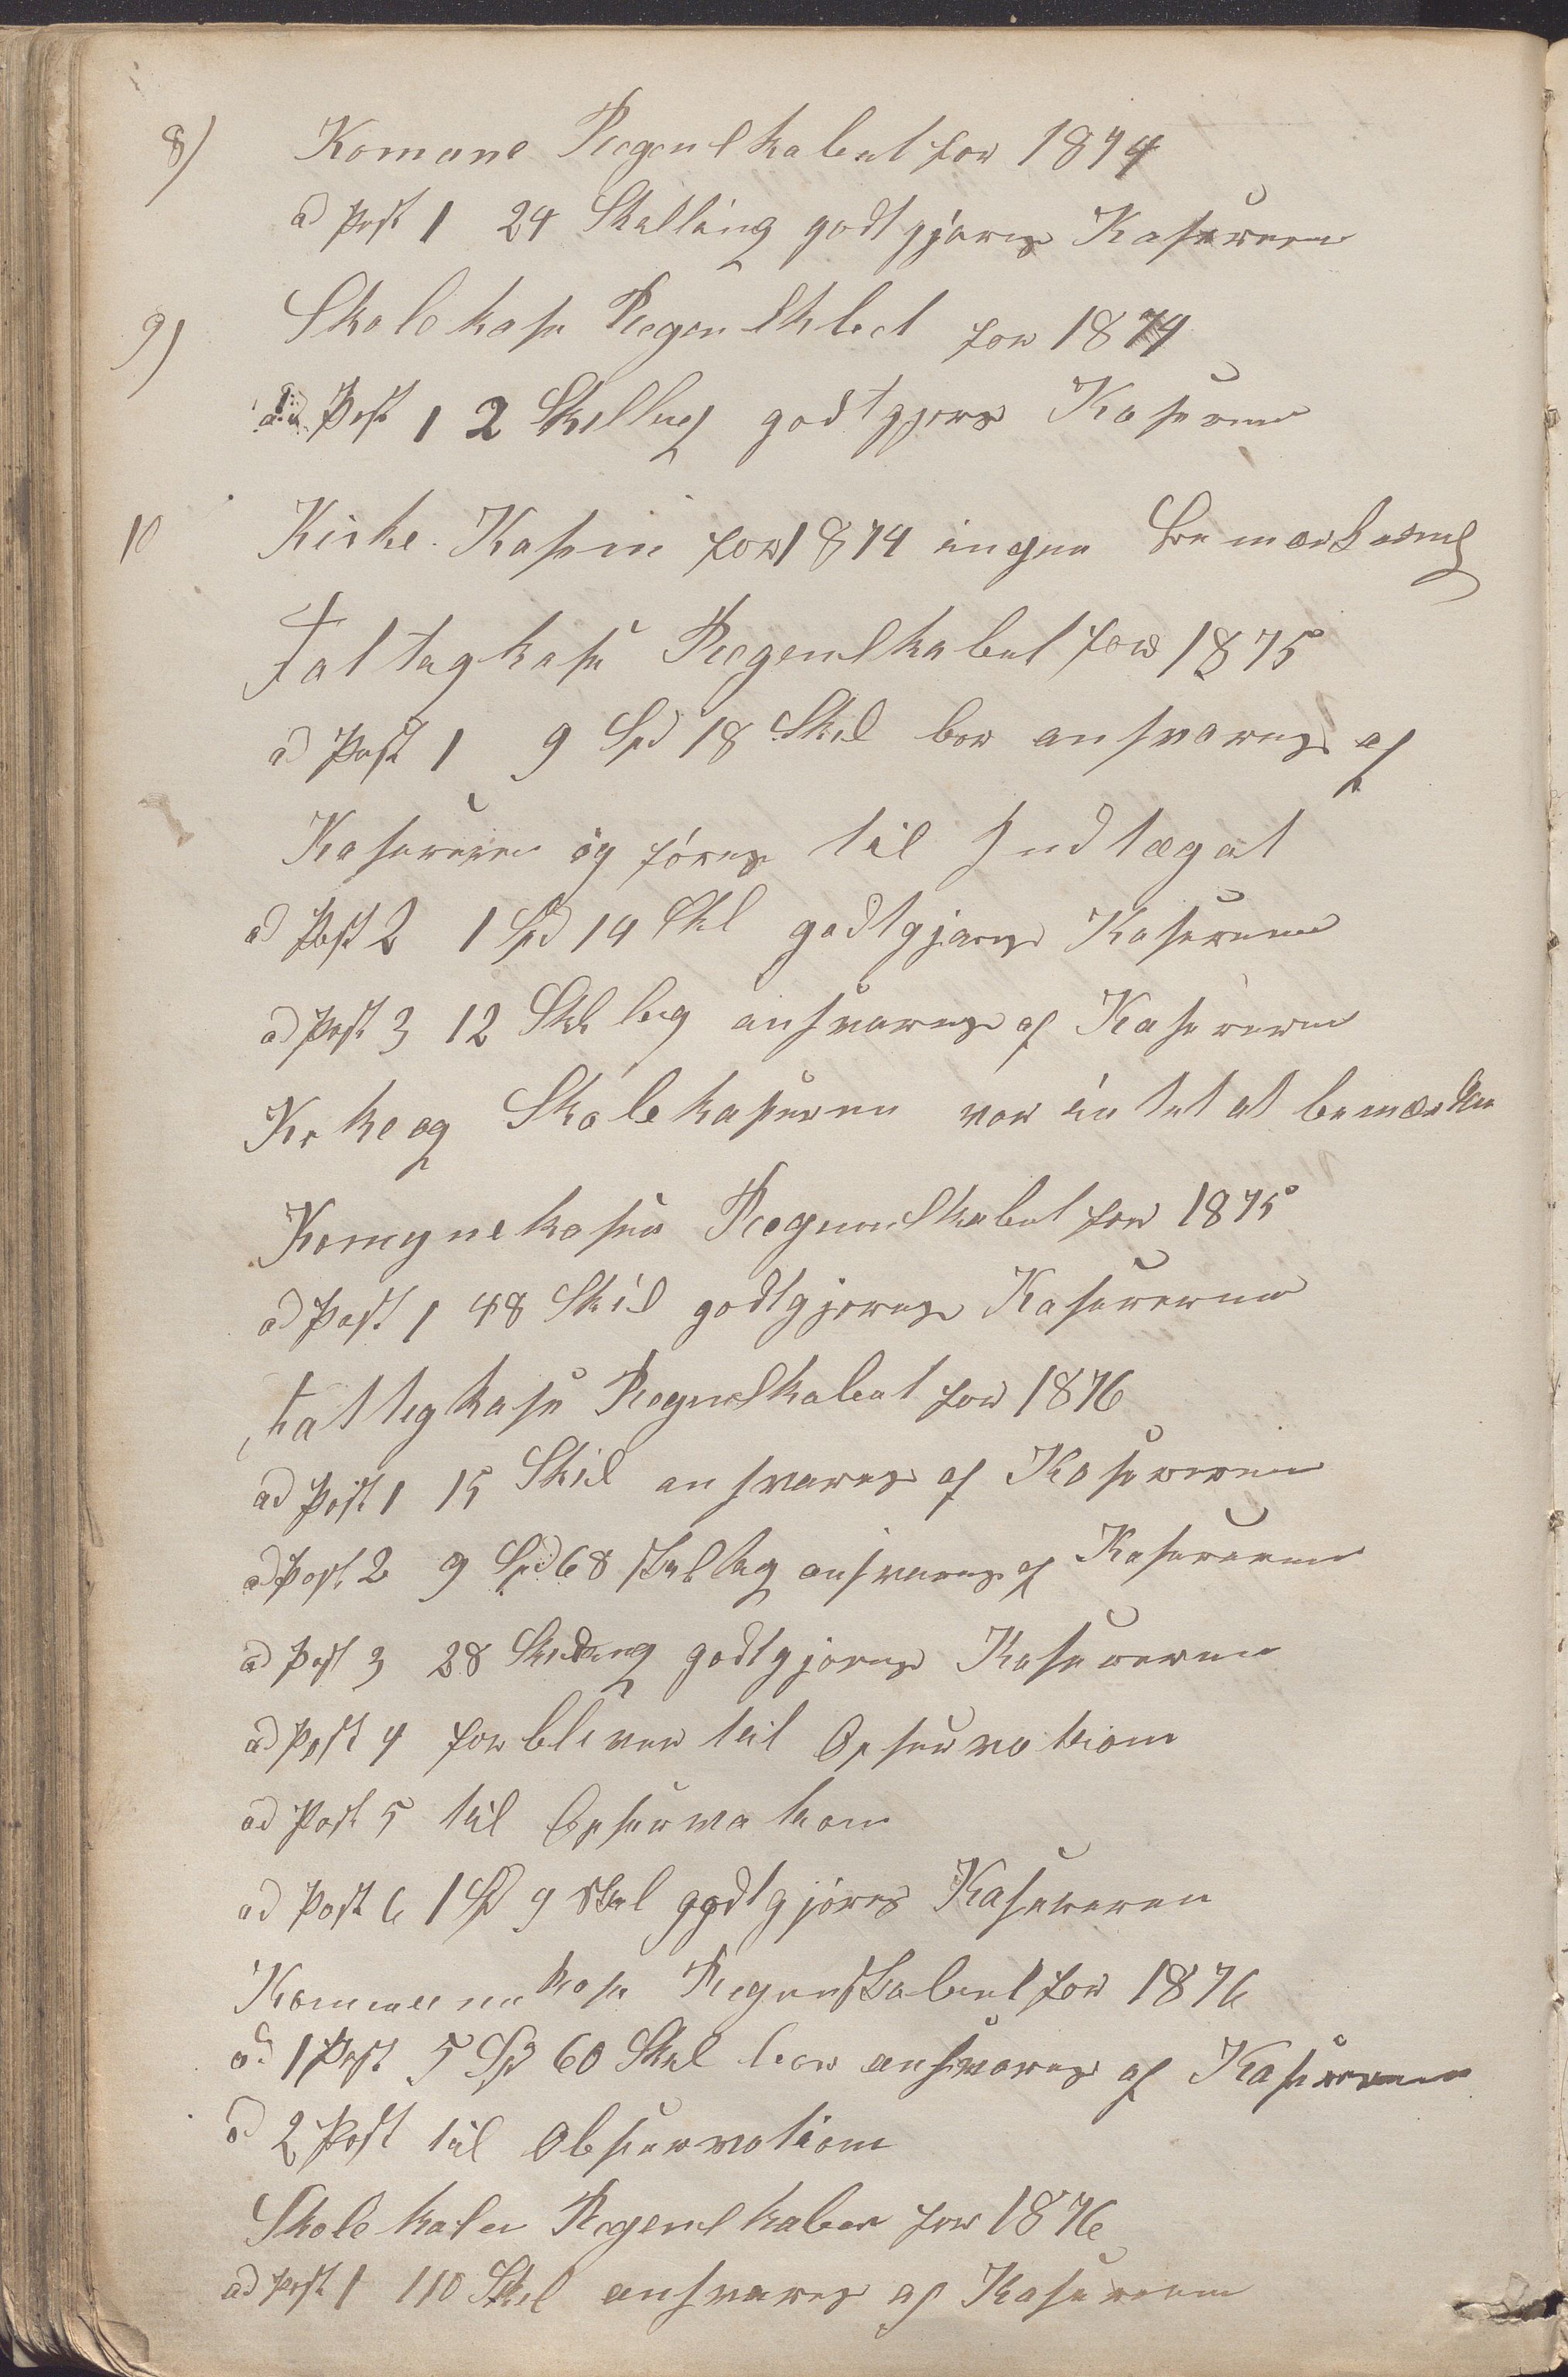 8) Komune Regenskabet for 1874
ad Post 1 24 Skilling godtgjøres Kasereren
9) Skolekase Regenskbet for 1874
ad Post 1 2 Skilling godtgjøres Kaseren
10 Kirke Kasen for 1874 ingen Bemærkning
Fattigkase Regenskabet for 1875
ad Post 1 9 Spd 18 Skil bør ansvares af
Kasereren og føres til Indtægt
ad Post 2 1 Spd 14 Skl godtgjøres Kasereren
ad Post 3 12 Skilling ansvares af Kasereren
Kirke og Skolekaseren var intet at bemærke
Komunekasen Regenskabet for 1875
ad Post 1 48 Skil godtgjøres Kasereren
Fattigkase Regnskabet for 1876
ad Post 1 15 Skil ansvares af Kasereren
ad Post 2 9 Spd 68 skilling ansvares af Kasereren
ad Post 3 28 Skilling godtgjøres Kasereren
ad Post 4 forbliver til Opservation
ad Post 5 til Opservation
ad Post 6 1 Spd 9 skil godtgjøres Kasereren
Kommunekase Regenskabet for 1876
ad 1 Post 5 Spd 60 Skil bør ansvares af Kasereren
ad 2 Post til Observation
Skolekasen Regenskaber for 1876
ad Post 1 110 Skil ansvares af Kasereren